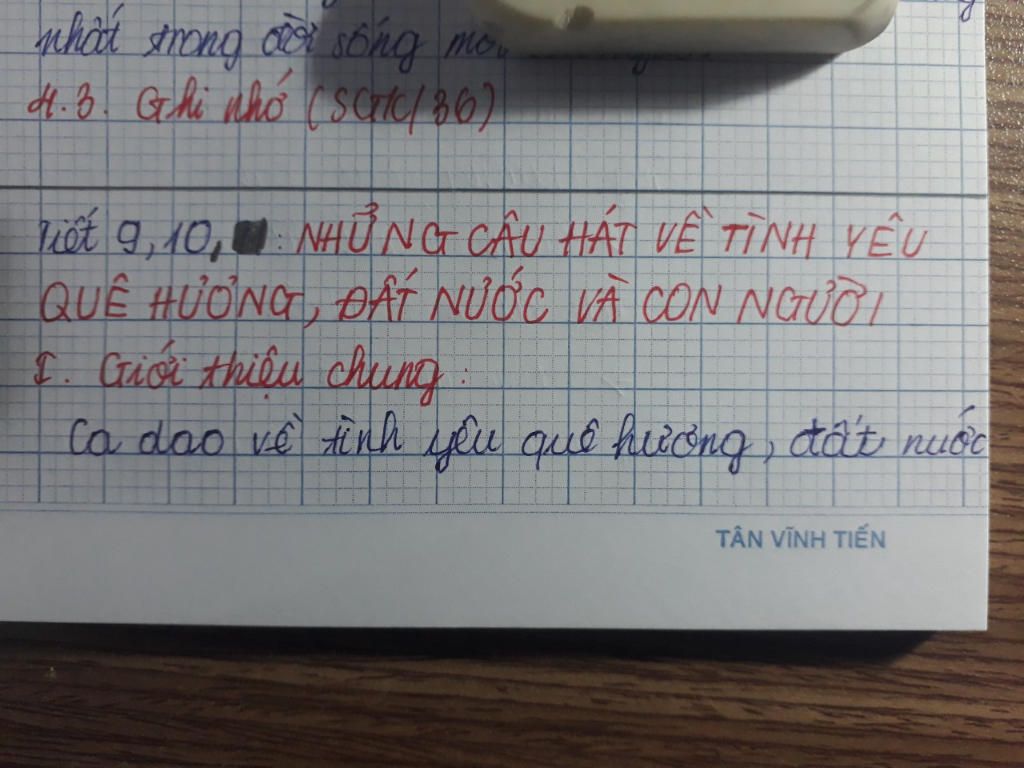 nhất trong đời sống mỗi
4.3. Ghi nhớ (SGK/36)
Tiết 9, 10, : NHỮNG CÂU HÁT VỀ TÌNH YÊU
QUÊ HƯƠNG, ĐẤT NƯỚC VÀ CON NGƯỜI
I. Giới thiệu chung:
Ca dao về tình yêu quê hương, đất nước
TÂN VĨNH TIẾN